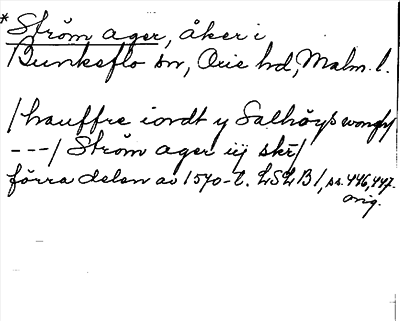 * Ström ager, åker i
Bunkeflo sn, Oxie hd, Malm. l.
/hauffre iordt y Salhöys wongh/
---/ Ström ager iij skr/
förra delen av 1570-t. LSLB 1, ss. 446, 447.
orig.